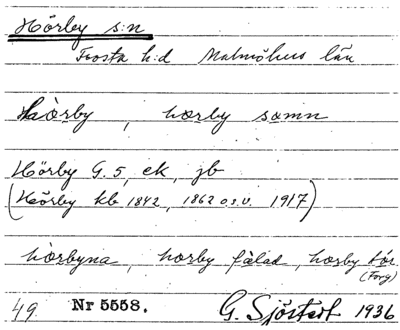 Hörby s:n
Frosta h:d Malmöhus län
hàrby, hœrby somn
Hörby G. 5, ek, jb
(Hörby kb 1842, 1862 o.s.v. 1917)
hœrbyna, hœrby fàlad, hœrby tòr
(Torg)
49 Nr 5558. G. Sjöstedt 1936